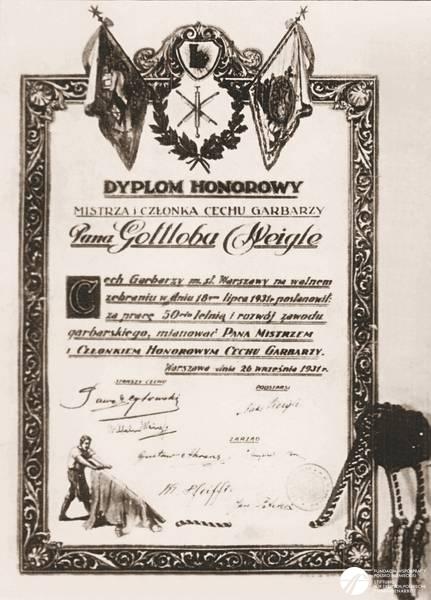 DYPLOM HONOROWY
MISTRZA i CZŁONKA CECHU GARBARZY
Pana Gottloba Weigle
Cech Garbarzy m. st. Warszawy na walnem
zebraniu w dniu 18gm lipca 1931r postanowił:
za pracę 50-cio letnią i rozwój zawodu
garbarskiego, mianować PANA MISTRZEM
i CZŁONKIEM HONOROWYM CECHU GARBARZY.
Warszawa dnia 26 września 1931r.
STARSZY CECHU
PODSTARSI
ZARZĄD
Pfeiffr
FUNDACJA WSPÓŁPRACY
POLSKO-NIEMIECKIEJ
STIFTUNG
FÜR DEUTSCH-POLNISCHE
ZUSAMMENARBEIT